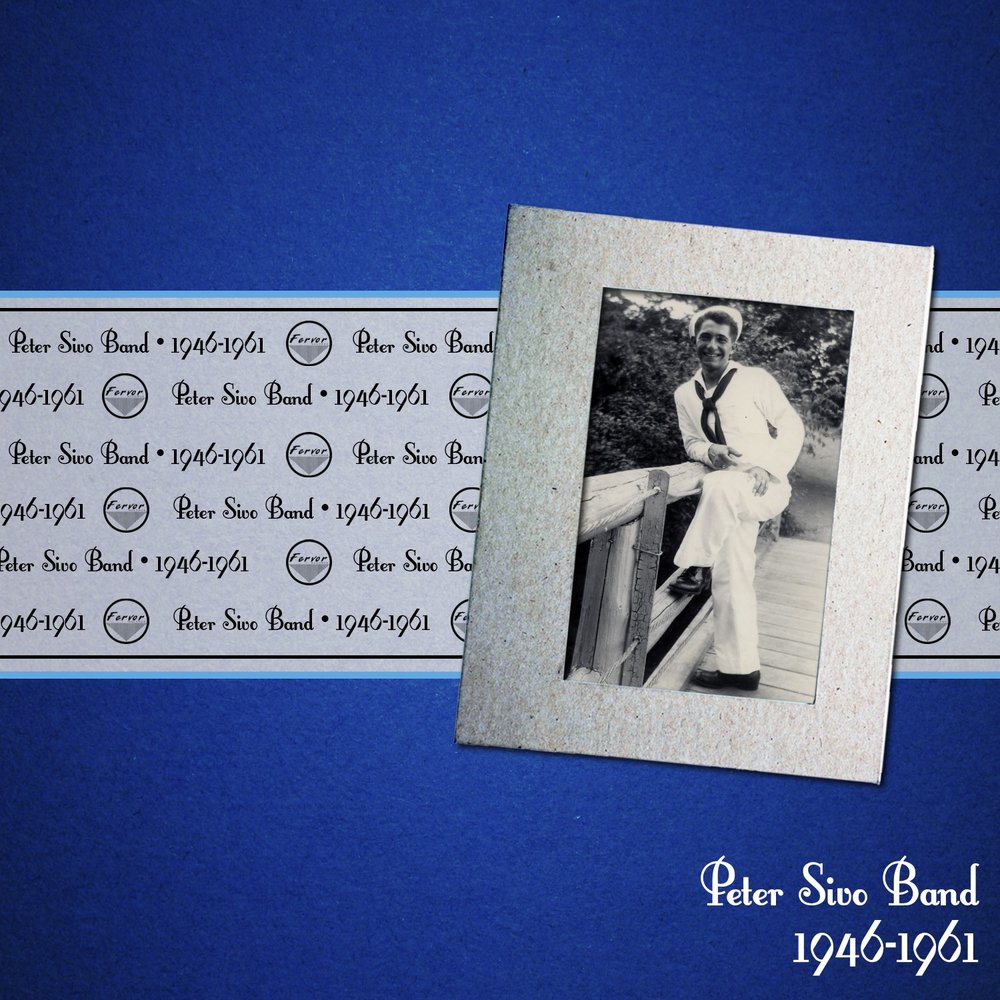 Peter Sivo Band • 1946-1961 Fervor Peter Sivo Band nd • 194
946-1961 Fervor Peter Sivo Band • 1946-1961 Fervor Pe
Peter Sivo Band • 1946-1961 Fervor Peter Sivo Ban and • 194
946-1961 Fervor Peter Sivo Band • 1946-1961 Fervor Pe
Peter Sivo Band • 1946-1961 Fervor Peter Sivo Ba Band • 194
946-1961 Fervor Peter Sivo Band • 1946-1961 Fervor Pe
Peter Sivo Band
1946-1961